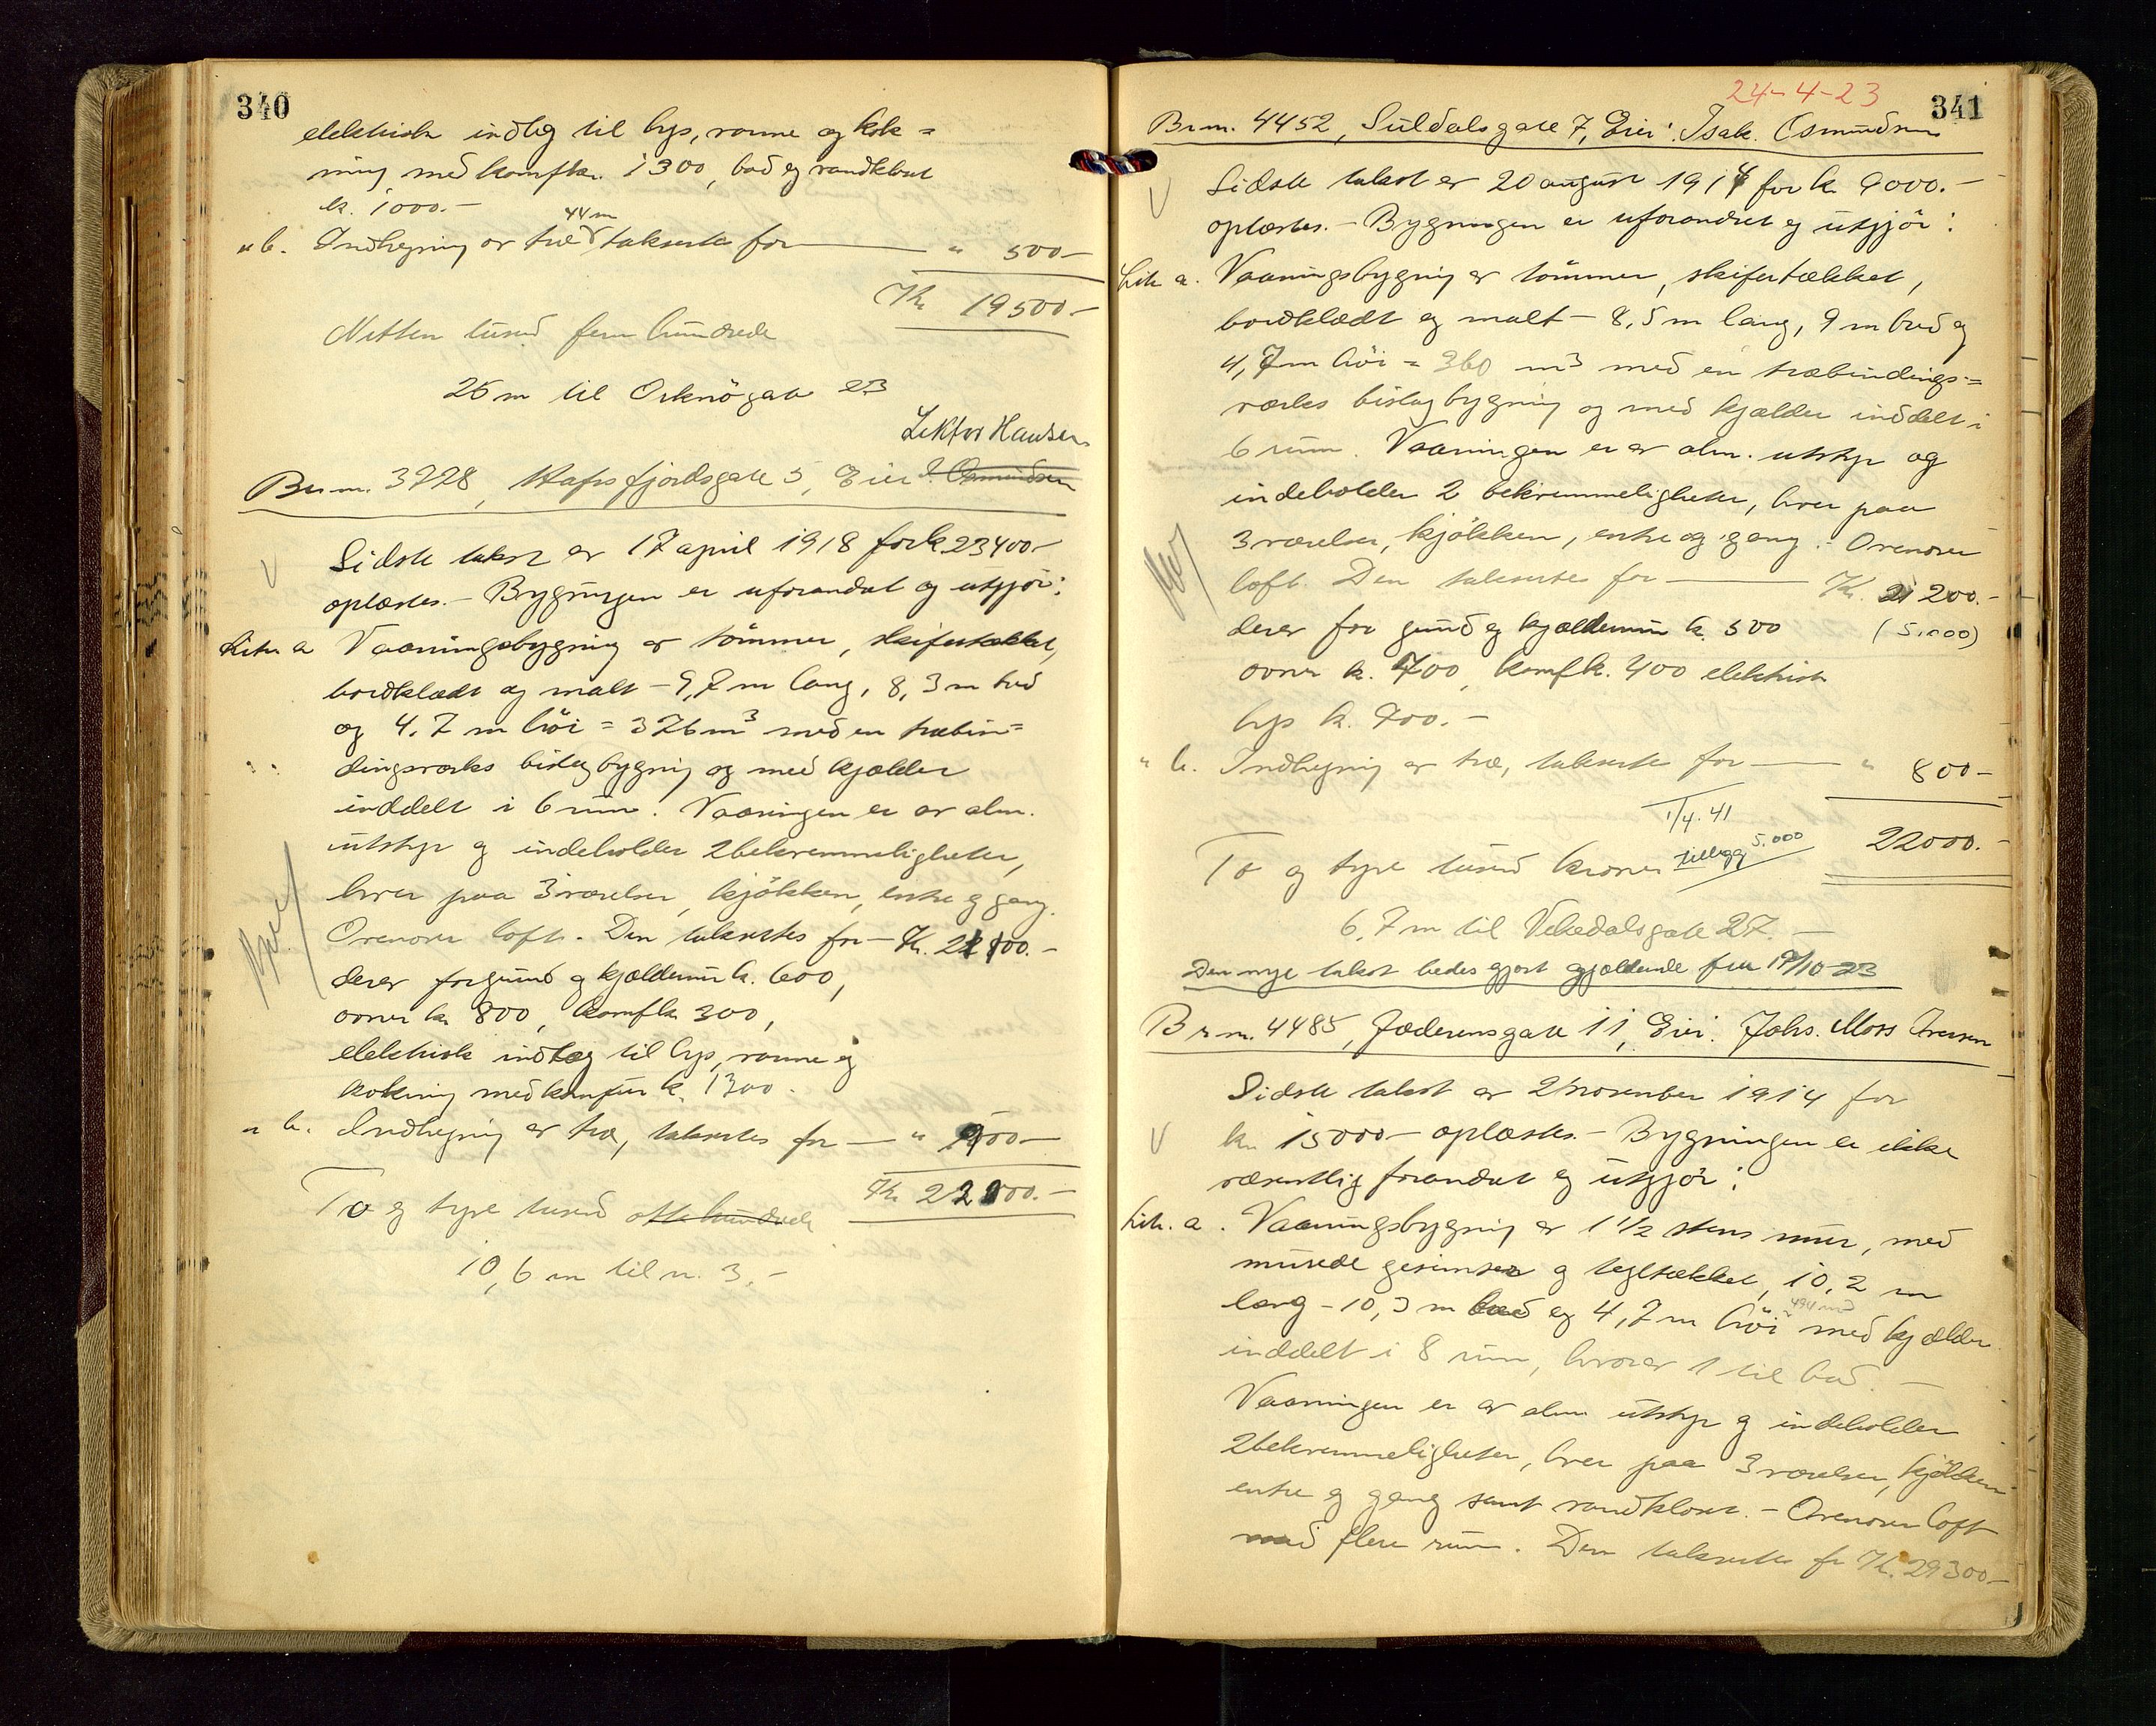 340
elektrisk indlæg til lys, varme og kok=
ning med komfkr. 1300, bad og vandkloset
kr. 1000.-
" b. Indhegning av træ 44 m taksertes for " 500-
Kr. 19500.-
Nitten tusind fem hundrede
25 m til Orknögate 23
Lektor Hansen
Brnr. 3728, Hafrsfjordsgate 5, Eier: Osmundsen
V Sidste takst er 17 april 1918 for kr 23400-
oplæstes. - Bygningen er uforandret og utgjör:
Litr a Vaaningsbygning av tömmer, skifertækket,
bordklædt og malt - 9,7 m lang, 8,3 m bred
og 4,7 m höi = 376 m3 med en træbin=
dingsverks bislagbygning og med kjælder
inddelt i 6 rum. Vaaningen er av alm.
utstyr og indeholder 2 bekvemmeligheter,
hver paa 3 værelser, kjökken, entre og gang.
Ovenover loft. - Den taksertes for - Kr. 21100.-
derav for grund og kjælderrum kr. 600,
ovner kr 800, komfkr 300,
elektrisk indlæg til lys, varme og
kokning med komfur kr. 1300.
" b. Indhegning av træ, taksertes for - " 900-
Kr 22000.-
To og tyve tusind otte hundrede
10,6 m til nr. 3.-
24-4-23
341
Brnr. 4452, Suldalsgate 7, Eier: Isak Osmundsen
V Sidste takst er 20 august 1914 for kr 9000.-
oplæstes. - Bygningen er uforandret og utgjör:
Litr a. Vaaningsbygning av tömmer, skifertækket,
bordklædt og malt - 8,5 m lang, 9 m bred og
4,7 m höi = 360 m3 med en træbindings=
verks bislagbygning og med kjælder inddelt i
6 rum. Vaaningen er av alm. utstyr og
indeholder 2 bekvemmeligheter, hver paa
3 værelser, kjökken, entre og gang. - Ovenover
loft. Den taksertes for Kr. 21200.-
derav for grund og kjælderrum kr. 500 (5.000)
ovner kr. 700, komfkr. 400 elektrisk
lys kr. 900.-
" b. Indhegning av træ, taksertes for " 800-
1/4.41
To og tyve tusind kroner tillegg 5.000 22000.-
6,7 m til Vikedalsgate 27.-
Den nye takst bedes gjort gjældende fra 19/10-23
Brnr. 4485, Jæderensgate 11, Eier: Johs. Moss Iversen
Sidste takst er 2 november 1914 for
V kr. 15000- oplæstes. - Bygningen er ikke
væsentlig forandret og utgjör:
Litr. a. Vaaningsbygning av 1 1/2 stens mur, med
murede gesimser og tegltækket, 10,2 m
lang - 10,3 m bred og 4,7 m höi = 494 m3 med kjælder
inddelt i 8 rum, hvorav 1 til bad. -
Vaaningen er av alm utstyr og indeholder
2 bekvemmeligheter, hver paa 3 værelser, kjökken
entre og gang samt vandkloset. - Ovenover loft
med flere rum. Den taksertes for Kr. 29300-